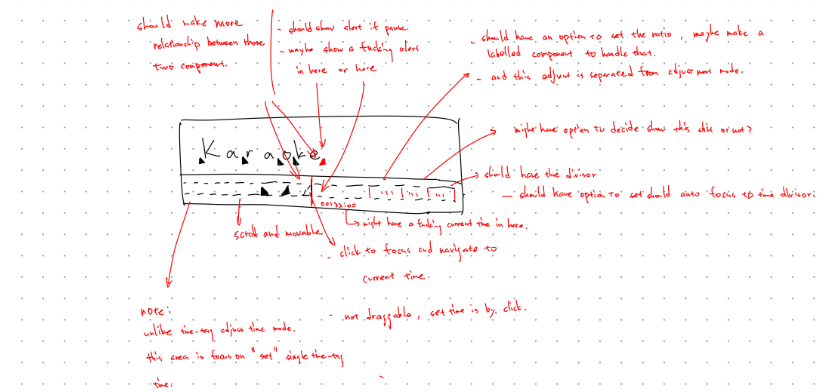 should make more
relationship between those
two component.
- should show alert if pause
- maybe show a fucking alert
in here or here
- should have an option to set the ratio, maybe make a
labelled component to handle that.
- and this adjust is separated from adjustment mode.
might have option to decide show this side or not?
Karaoke
should have the divisor
- should have option to set should auto focus to time divisor.
00:33:00
might have a fucking current time in here.
scroll and movable
- click to focus and navigate to
current time.
- not draggable, set time is by click.
note:
unlike time-tag adjust time mode.
this area is focus on "set" single time-tag
time.